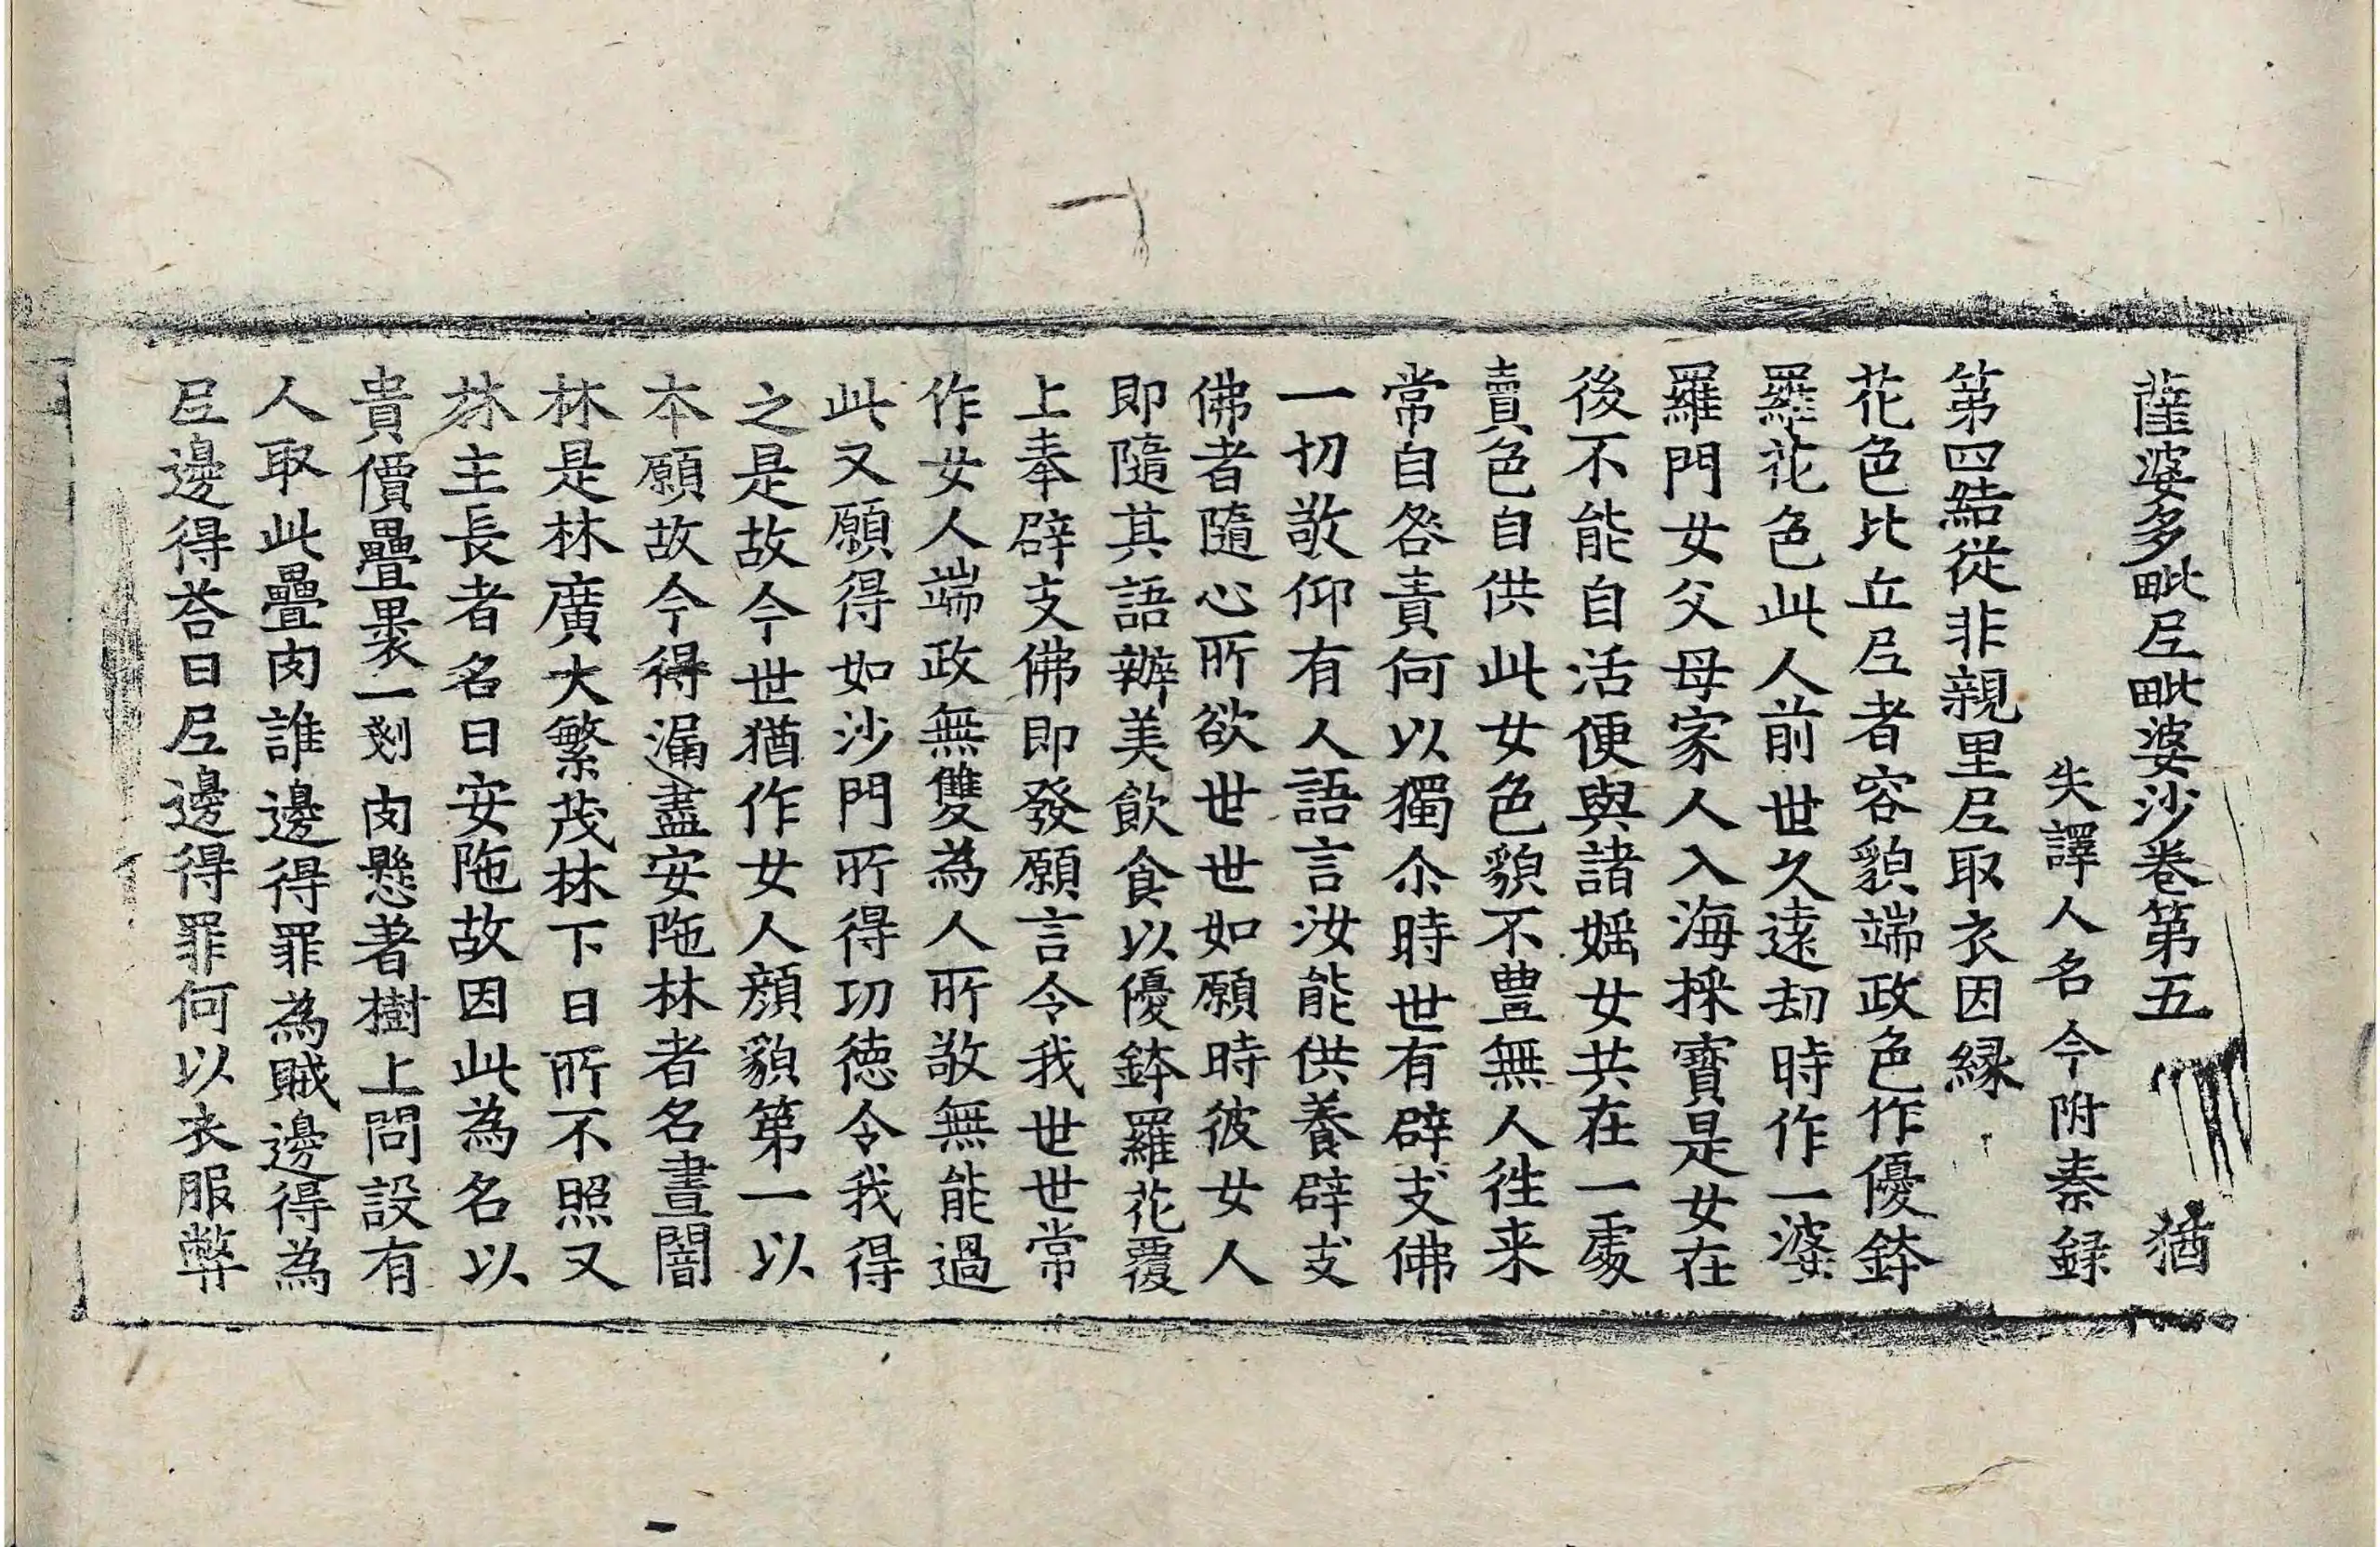 薩婆多毗尼毗婆沙卷第五 猶
失譯人名今附秦録
第四結從非親里尼取衣因緣
花色比丘尼者容貌端政色作優鉢
羅花色此人前世久遠劫時作一婆
羅門女父母家人入海採寶是女在
後不能自活便與諸婬女共在一處
賣色自供此女色貌不豊無人往来
常自咎責何以獨尒時世有辟支佛
一切敬仰有人語言汝能供養辟支
佛者隨心所欲世世如願時彼女人
即隨其語辦美飲食以優鉢羅花覆
上奉辟支佛即發願言令我世世常
作女人端政無雙為人所敬無能過
此又願得如沙門所得功徳令我得
之是故今世猶作女人顔貌第一以
本願故今得漏盡安陁林者名晝闇
林是林廣大繁茂林下日所不照又
林主長者名曰安陁故因此為名以
貴價疊裹一剗肉懸著樹上問設有
人取此疊肉誰邊得罪為賊邊得為
尼邊得荅曰尼邊得罪何以衣服弊